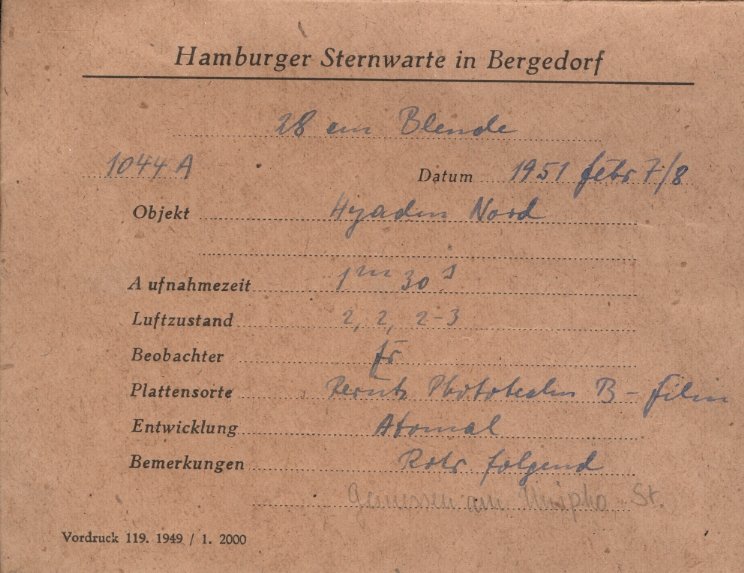 Hamburger Sternwarte in Bergedorf
28 cm Blende
1044 A Datum 1951 febr 7/8
Objekt Hyaden Nord
Aufnahmezeit 1m 30s
Luftzustand 2, 2, 2-3
Beobachter fr
Plattensorte Perutz Phototechn B-Film
Entwicklung Atomal
Bemerkungen Rohr folgend
Gemessen am St.
Vordruck 119. 1949 / 1. 2000